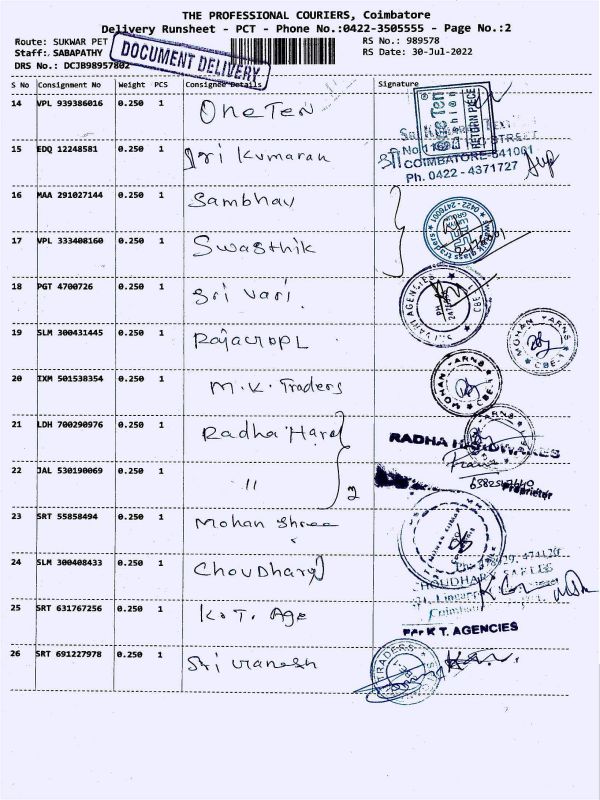 THE PROFESSIONAL COURIERS, Coimbatore
Delivery Runsheet - PCT - Phone No.:0422-3505555 - Page No.:2
Route: SUKWAR PET
RS No.: 989578
Staff: SABAPATHY
RS Date: 30-Jul-2022
DRS No.: DCJB98957802
DOCUMENT DELIVERY
S No Consignment No Weight PCS Consignee Details Signature
14 VPL 939386016 0.250 1 One Ten
RETURN PIECE
15 EDQ 12248581 0.250 1 Sri Kumaran
COIMBATORE-641001
Ph. 0422 - 4371727
16 MAA 291027144 0.250 1 Sambhav
17 VPL 333408160 0.250 1 Swasthik
18 PGT 4700726 0.250 1 Sri Vari
19 SLM 300431445 0.250 1
MOHAN YARNS CBE-1
20 IXM 501538354 0.250 1 M.K. Traders
MOHAN YARNS CBE-1
21 LDH 700290976 0.250 1 Radha Hard
RADHA HARDWARES
22 JAL 530190069 0.250 1 "
2
Proprietor
23 SRT 55858494 0.250 1 Mohan Shree
24 SLM 300408433 0.250 1 Choudhary
25 SRT 631767256 0.250 1 K.T. Age
For K T. AGENCIES
26 SRT 691227978 0.250 1 Sri
TRADERS